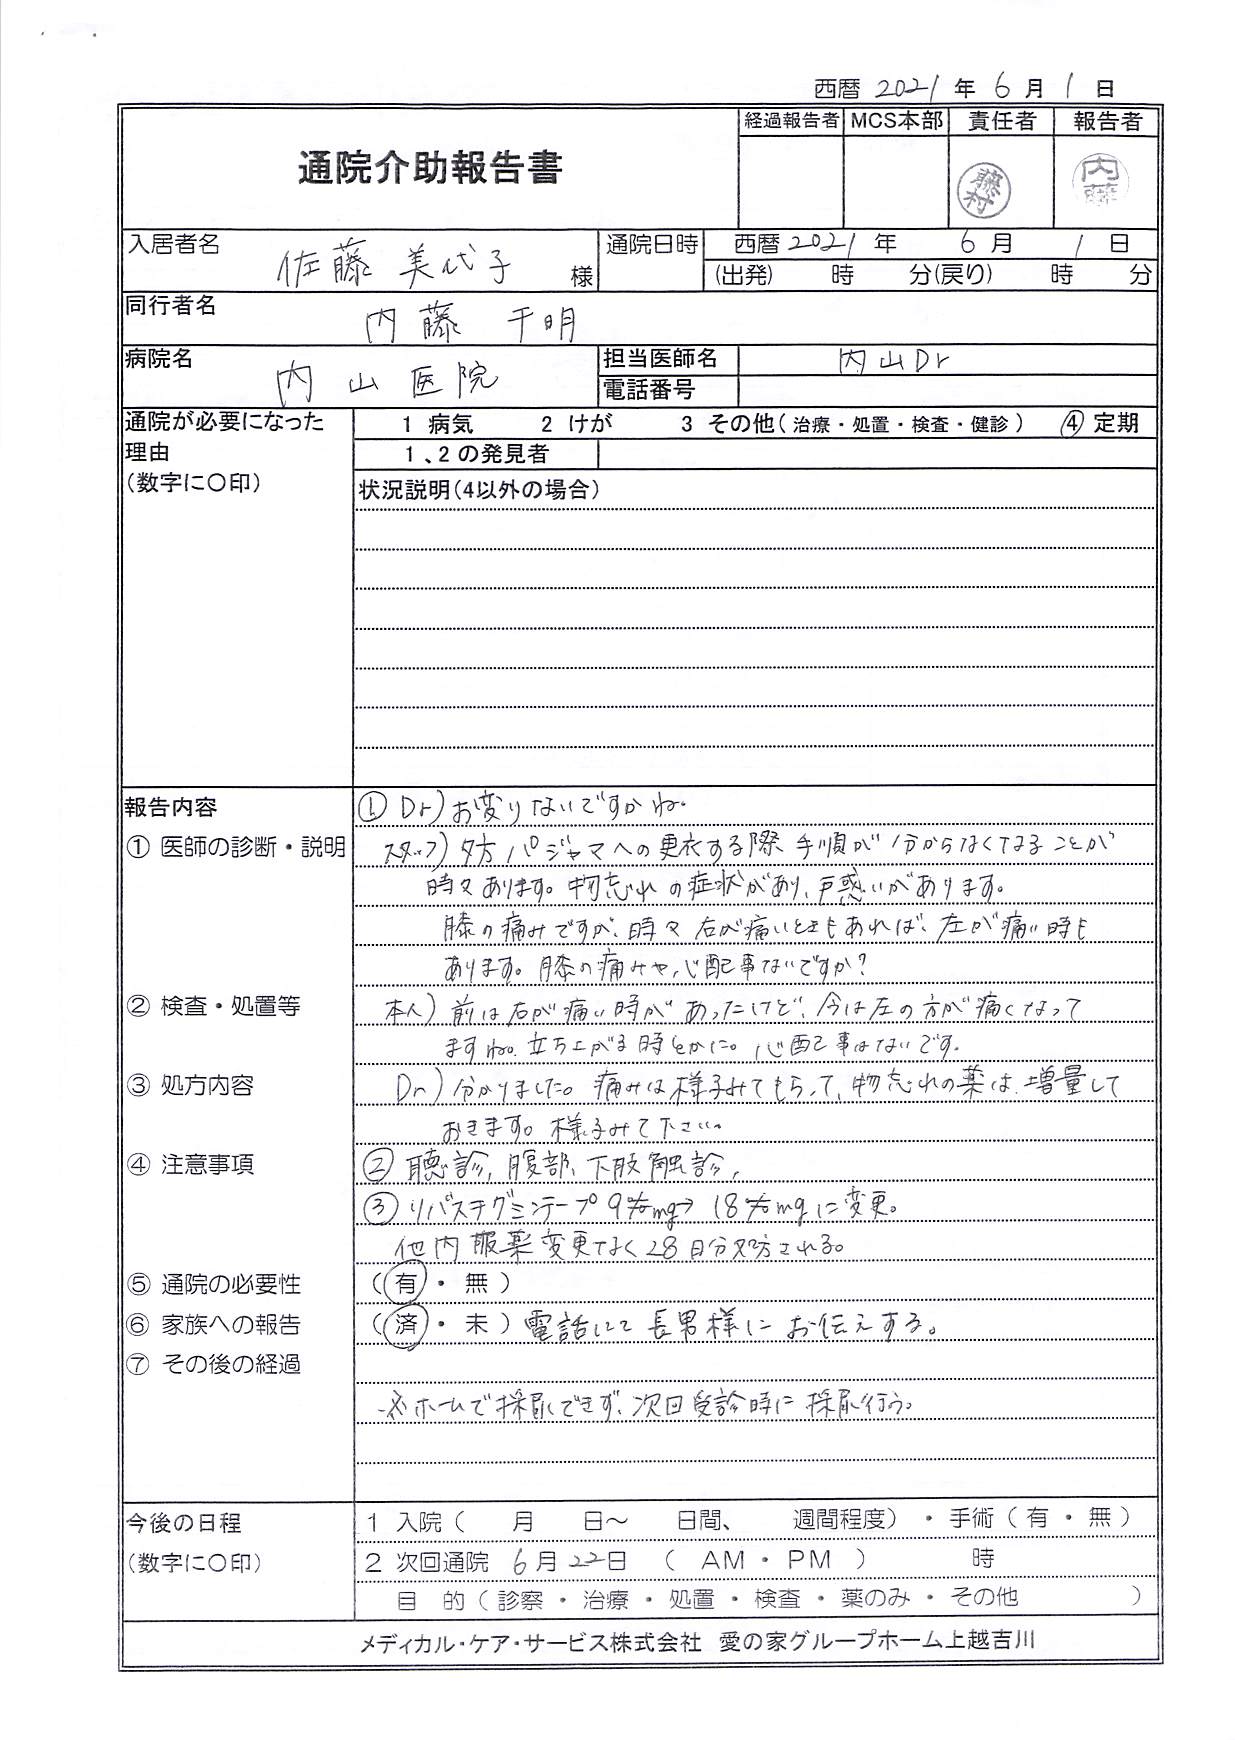 西暦 2021 年 6 月 1 日
通院介助報告書
経過報告者 MCS本部 責任者 報告者
藤村 内藤
入居者名 佐藤 美代子 様
通院日時 西暦 2021 年 6 月 1 日
(出発) 時 分(戻り) 時 分
同行者名 内藤 千明
病院名 内山医院
担当医師名 内山Dr
電話番号
通院が必要になった
理由
(数字に〇印)
1 病気 2 けが 3 その他( 治療・処置・検査・健診 ) ④ 定期
1、2の発見者
状況説明(4以外の場合)
報告内容
① Dr)お変りないですかね。
① 医師の診断・説明
スタッフ)夕方パジャマへの更衣する際 手順が分からなくなることが
時々あります。物忘れの症状があり、戸惑いがあります。
膝の痛みですが、時々右が痛いときもあれば、左が痛い時も
あります。膝の痛みや心配事ないですか?
② 検査・処置等
本人)前は右が痛い時があったけど、今は左の方が痛くなって
ますね。立ち上がる時とかに。心配事はないです。
③ 処方内容
Dr)分かりました。痛みは様子みてもらって、物忘れの薬は増量して
おきます。様子みて下さい。
④ 注意事項
②聴診、腹部、下肢触診、
③リバスチグミンテープ9%mg→18%mgに変更。
他内服薬変更なく28日分処方される。
⑤ 通院の必要性 (有・無)
⑥ 家族への報告 (済・未)電話にて長男様にお伝えする。
⑦ その後の経過
※ホームで採尿できず、次回受診時に採尿行う。
今後の日程
(数字に〇印)
1 入院( 月 日〜 日間、 週間程度)・手術(有・無)
2 次回通院 6月22日 ( AM・PM ) 時
目 的(診察・治療・処置・検査・薬のみ・その他 )
メディカル・ケア・サービス株式会社 愛の家グループホーム上越吉川